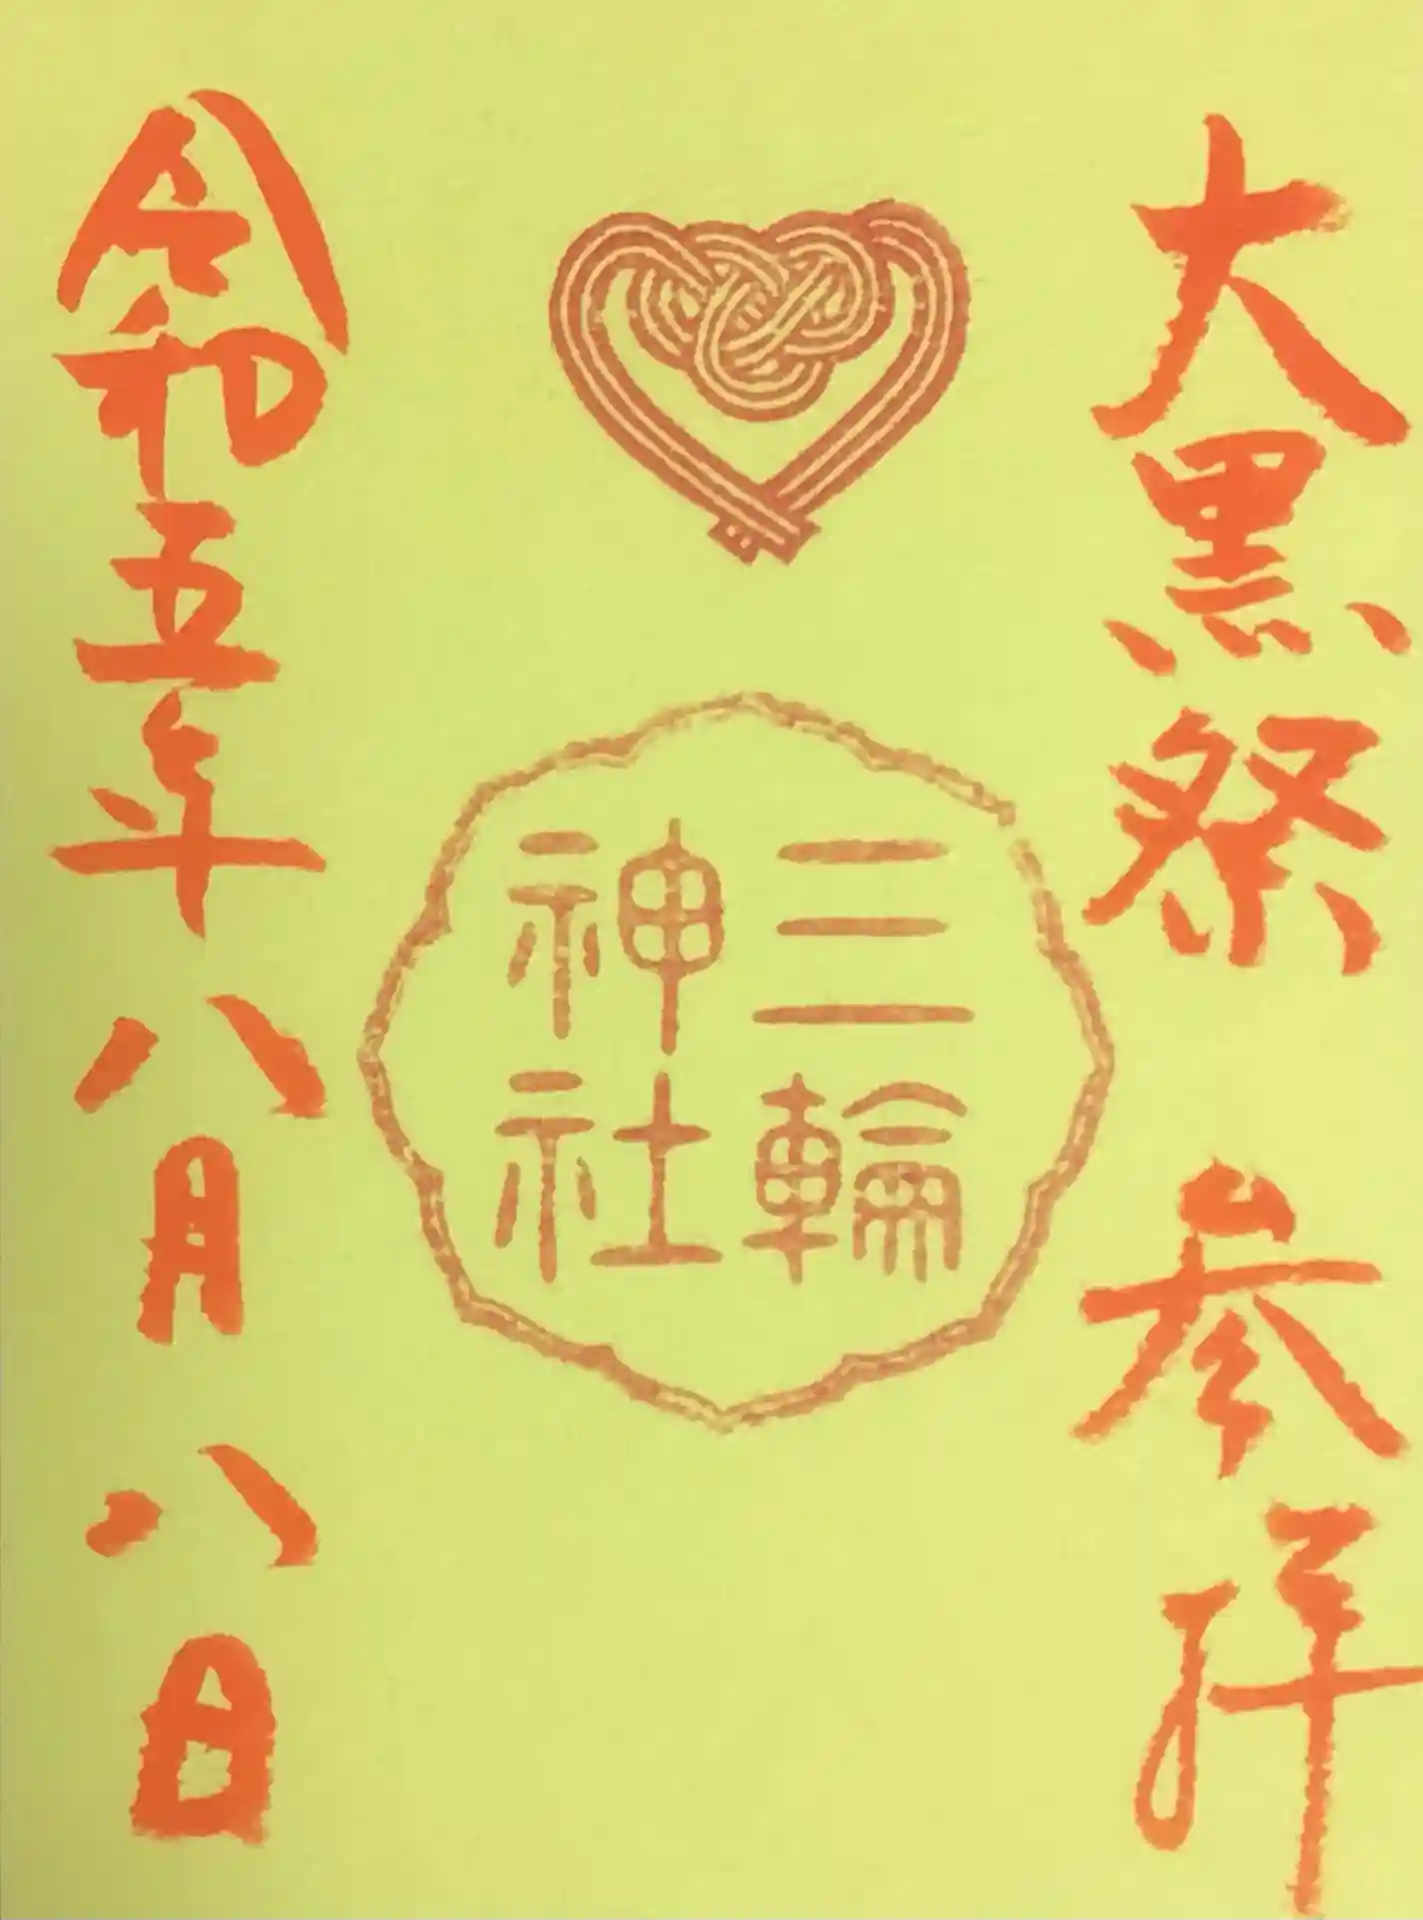 大黒祭 参拝
三輪
神社
令和五年八月八日